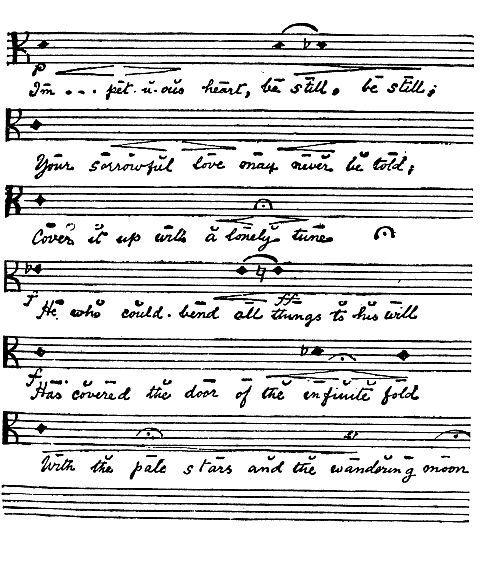 p
Im . . . pet . u . ous heart, be still, be still;
Your sorrowful love may never be told;
Cover it up with a lonely tune
f ff
He who could . bend all things to his will
f
Has covered the door of the infinite fold
With the pale stars and the wandering moon